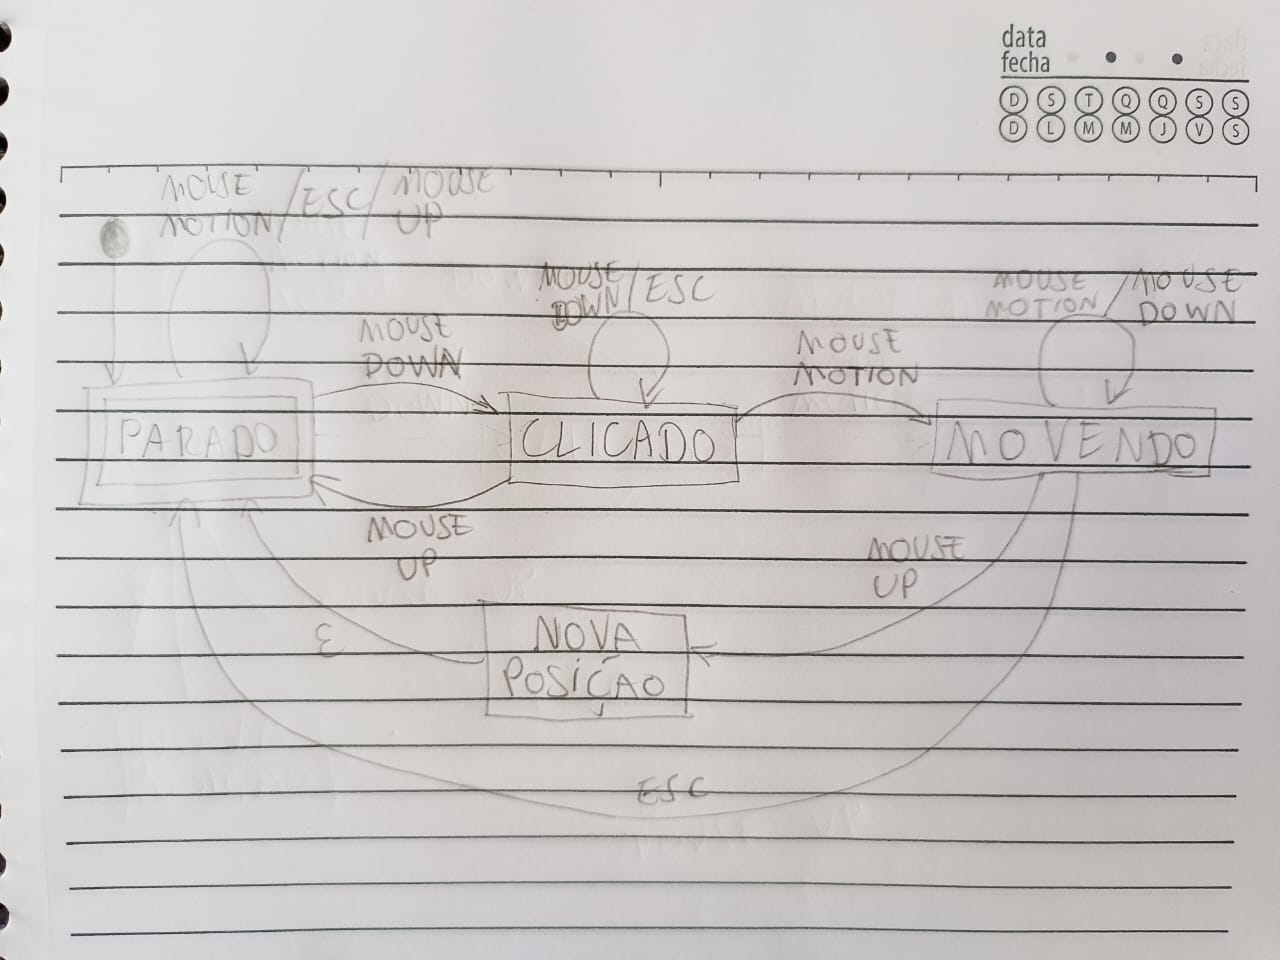 data
fecha
D S T Q Q S S
D L M M J V S
MOUSE
MOTION/ESC/MOUSE
UP
MOUSE
DOWN/ESC
MOUSE
MOTION/MOUSE
DOWN
MOUSE
DOWN
MOUSE
MOTION
PARADO
CLICADO
MOVENDO
MOUSE
UP
MOUSE
UP
ε
NOVA
POSIÇÃO
ESC